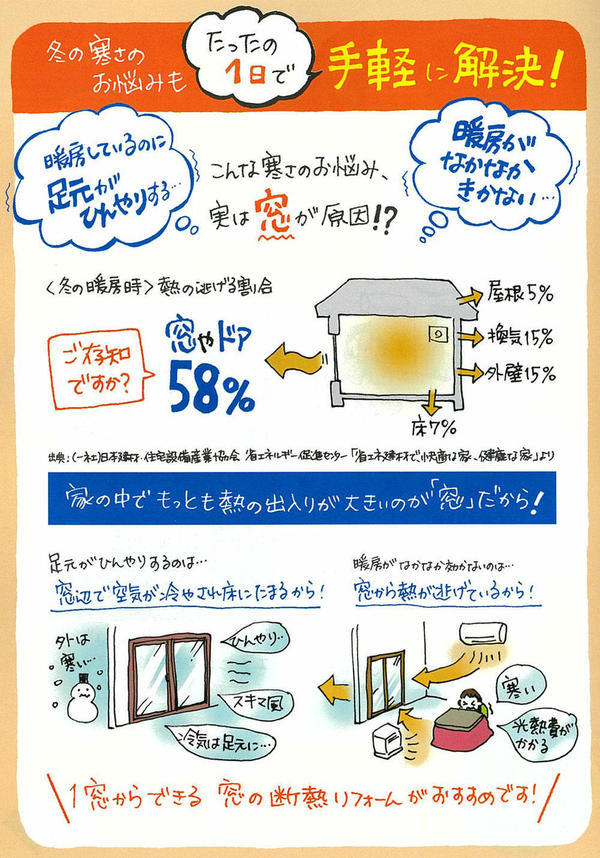 冬の寒さの
お悩みも
たったの
1日で
手軽に解決!
暖房しているのに
足元が
ひんやりする…
暖房が
なかなか
きかない…
こんな寒さのお悩み、
実は窓が原因!?
〈冬の暖房時〉熱の逃げる割合
ご存知
ですか?
窓やドア
58%
屋根5%
換気15%
外壁15%
床7%
出典:(一社)日本建材・住宅設備産業協会 省エネルギー促進センター「省エネ建材で快適な家、健康な家」より
家の中でもっとも熱の出入りが大きいのが「窓」だから!
足元がひんやりするのは…
窓辺で空気が冷やされ床にたまるから!
外は
寒い…
ひんやり…
スキマ風
冷気は足元に…
暖房がなかなか効かないのは…
窓から熱が逃げているから!
寒い
光熱費が
かかる
1窓からできる 窓の断熱リフォームがおすすめです!